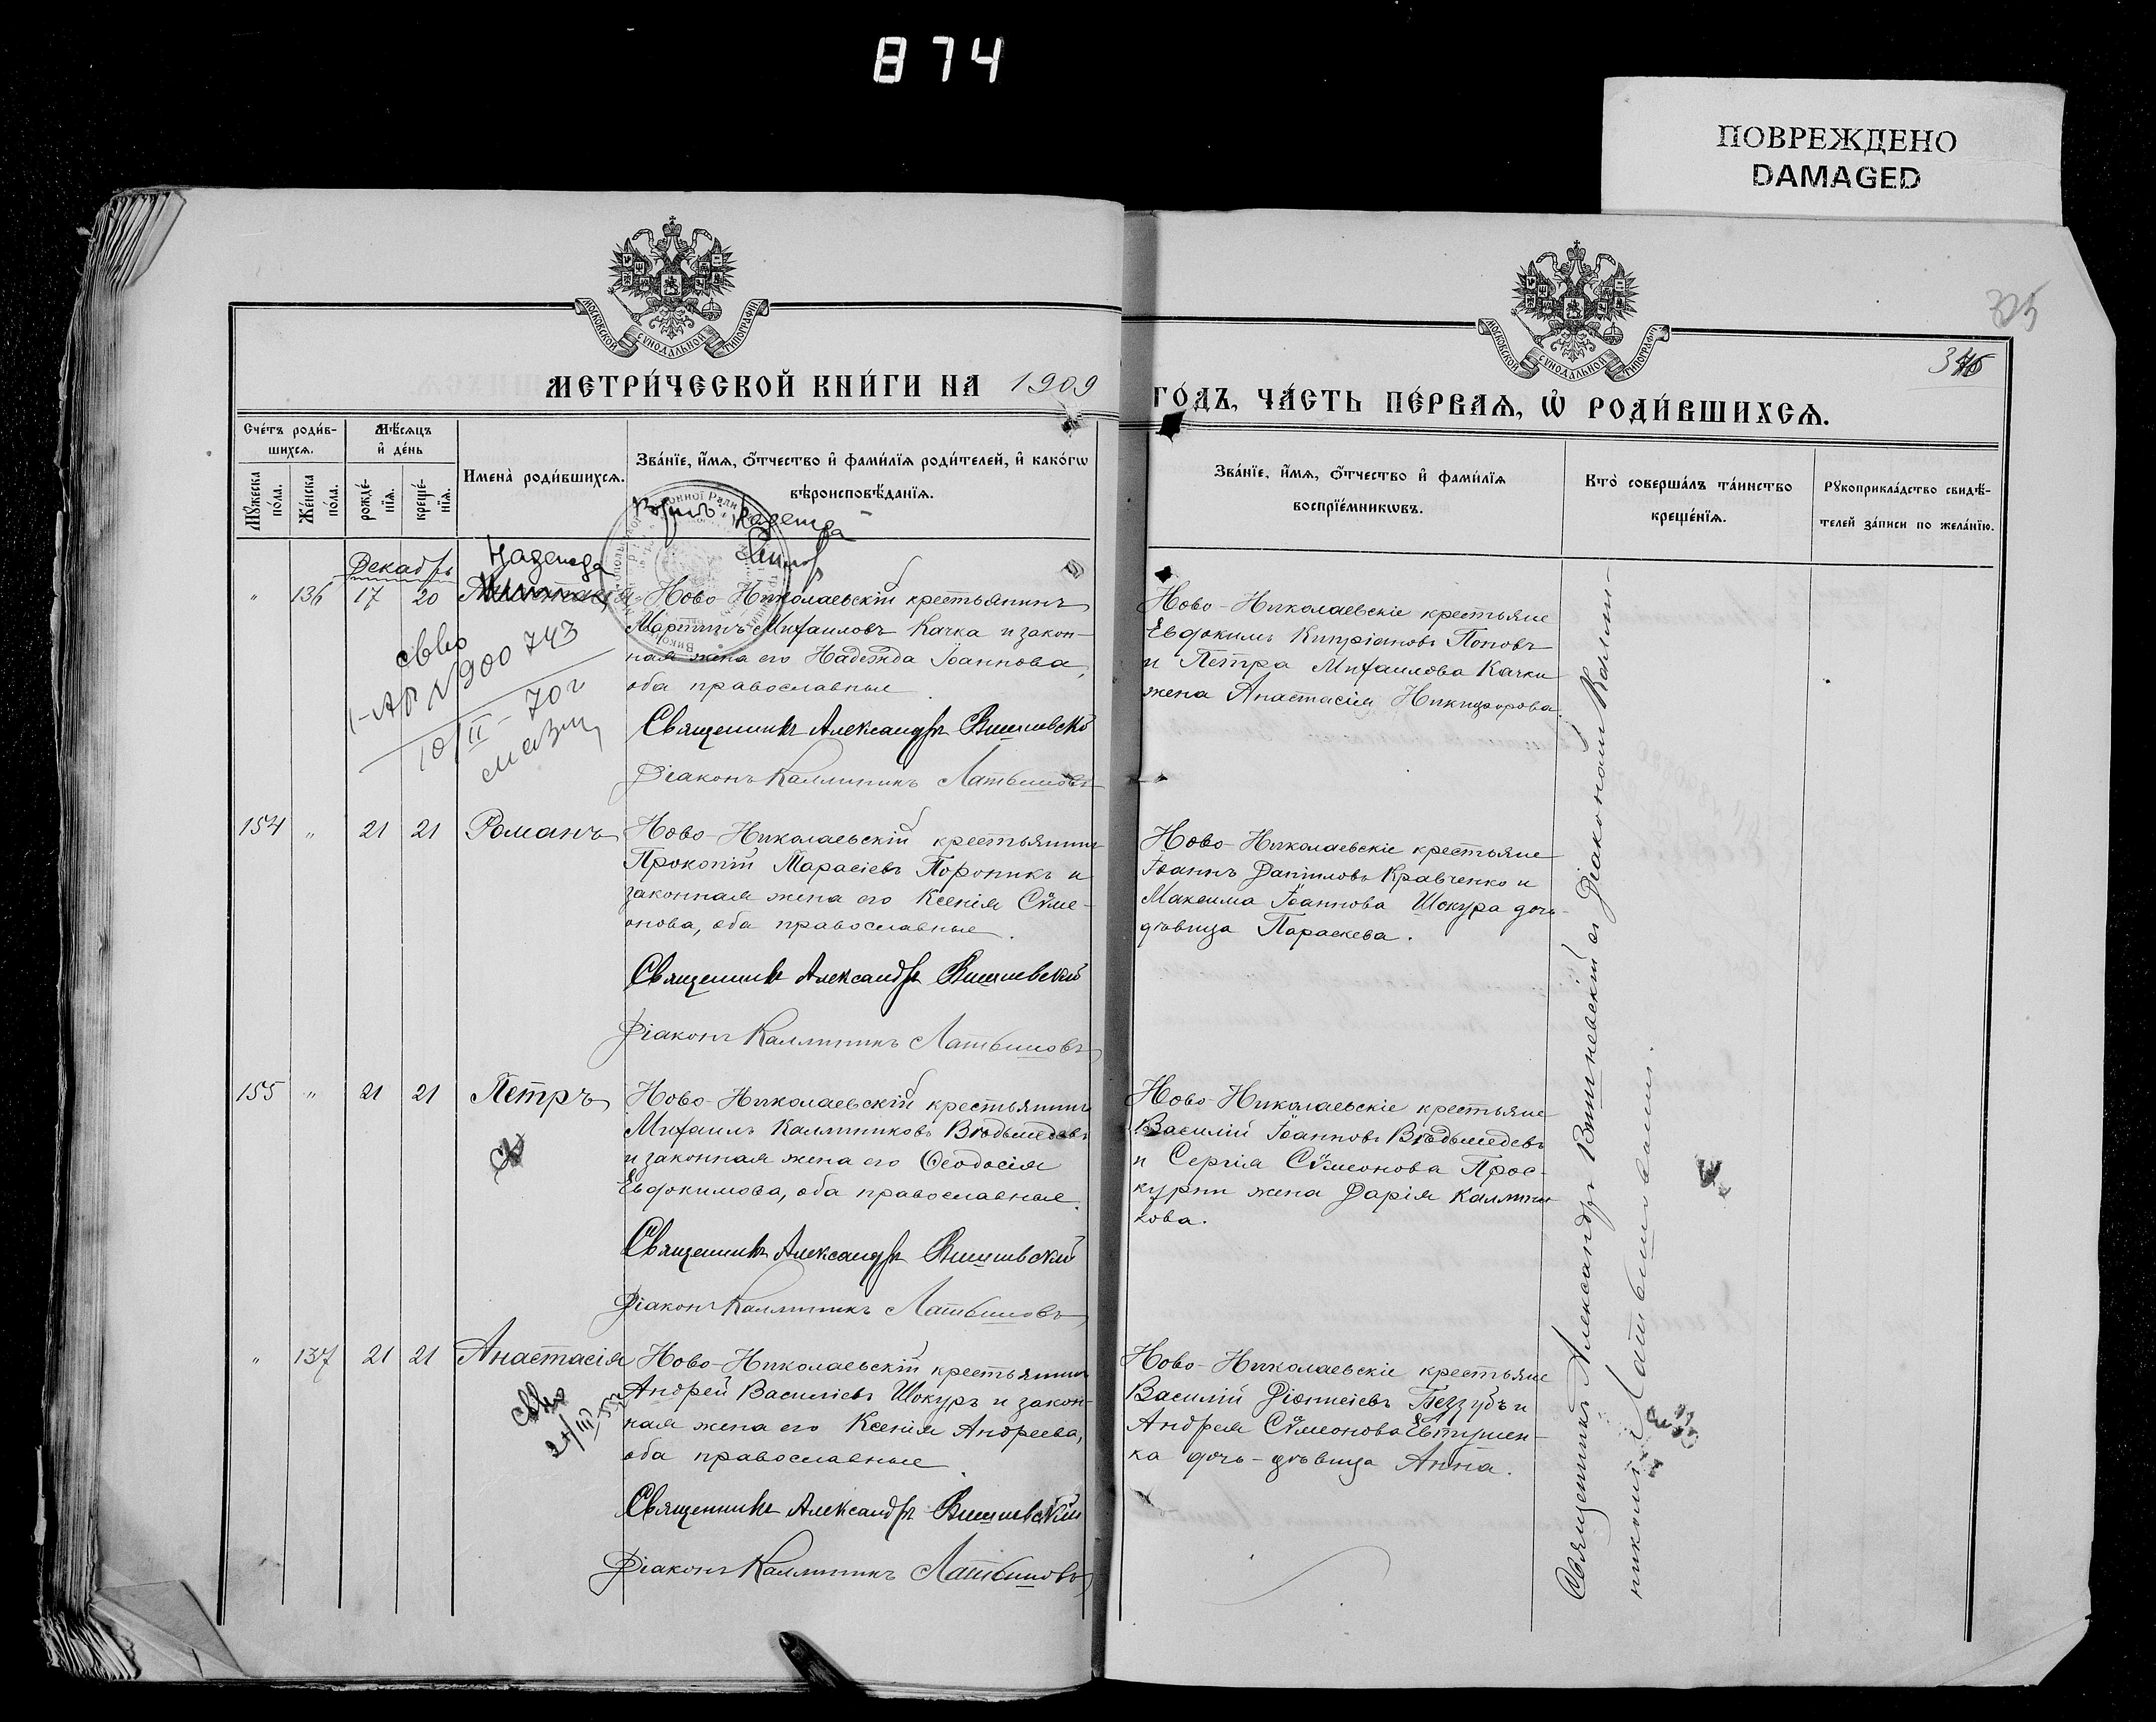 874
ПОВРЕЖДЕНО
DAMAGED
МОСКОВСКОЙ СѴНОДАЛЬНОЙ ТИПОГРАФІИ
МОСКОВСКОЙ СѴНОДАЛЬНОЙ ТИПОГРАФІИ
325
МЕТРИ́ЧЕСКОЙ КНИ́ГИ НА 1909
ГО́ДЪ, ЧА́СТЬ ПЕ́РВАѦ, Ѡ҆ РОДИ́ВШИХСѦ.
Сче́тъ роди́в-
шихсѧ.
Мꙋ́жеска по́ла.
Же́нска по́ла.
Мѣ́сѧцъ
и҆ де́нь
рожде́-
нїѧ.
креще́-
нїѧ.
Имена̀ роди́вшихсѧ.
Зва́нїе, и҆́мѧ, ѻ҆́тчество и҆ фами́лїѧ роди́телей, и҆ како́гѡ
вѣроисповѣ́данїѧ.
Зва́нїе, и҆́мѧ, ѻ҆́тчество и҆ фами́лїѧ
воспрїе́мникѡвъ.
Кто̀ соверша́лъ та́инство
креще́нїѧ.
Рꙋкоприкла́дство свидѣ́-
телей за́писи по жела́нїю.
Надежда
Декабрь
Надежда
" 136 17 20 Ново-Николаевскій крестьянинъ
Мартинъ Михаиловъ Качка и закон-
ная жена его Надежда Іоаннова,
оба православные
Священникъ Александръ Вишневскій
Діаконъ Каллиникъ Латышовъ
Ново-Николаевскіе крестьяне
Евдокимъ Кипріановъ Поповъ
и Петра Михаилова Качки
жена Анастасія Никифорова.
свво
I-АП № 900743
10/II-70 г
154 " 21 21 Романъ Ново-Николаевскій крестьянинъ
Прокопій Тарасіевъ Пороникъ и
законная жена его Ксенія Сѵме-
онова, оба православные.
Священникъ Александръ Вишневскій
Діаконъ Каллиникъ Латышовъ
Ново-Николаевскіе крестьяне
Іоаннъ Даніиловъ Кравченко и
Максима Іоаннова Шокура дочь-
дѣвица Параскева.
155 " 21 21 Петръ Ново-Николаевскій крестьянинъ
Михаилъ Каллиниковъ Вѣдьмедевъ
и законная жена его Ѳеодосія
Евдокимова, оба православные.
Священникъ Александръ Вишневскій
Діаконъ Каллиникъ Латышовъ
Ново-Николаевскіе крестьяне
Василій Іоанновъ Вѣдьмедевъ
и Сергія Сѵмеонова Прос-
курни жена Дарія Каллини-
кова.
" 137 21 21 Анастасія Ново-Николаевскій крестьянинъ
Андрей Василіевъ Шокуръ и закон-
ная жена его Ксенія Андреева,
оба православные.
Священникъ Александръ Вишневскій
Діаконъ Каллиникъ Латышовъ
Ново-Николаевскіе крестьяне
Василій Діонисіевъ Беззубъ и
Андрея Сѵмеонова Евтушен-
ка дочь-дѣвица Анна.
Священникъ Александръ Вишневскій съ Діакономъ Калли-
никомъ Латышовымъ.